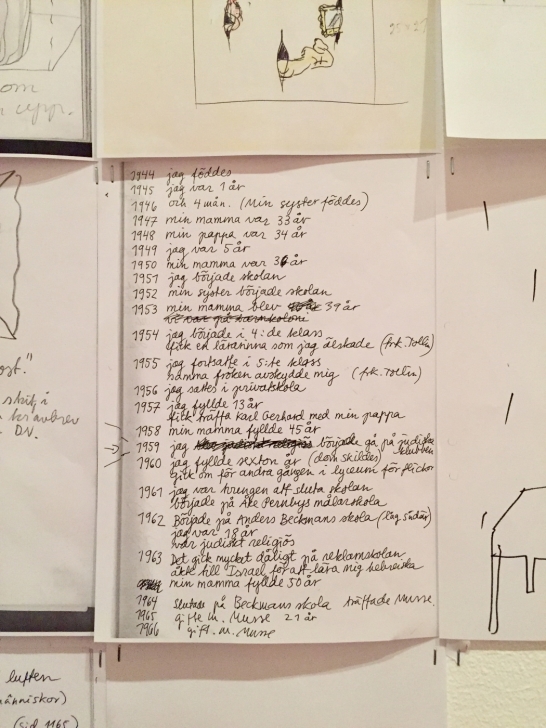 om
1944 jag föddes
1945 jag var 1 år
1946 och 4 mån. (Min syster föddes)
1947 min mamma var 33 år
1948 min pappa var 34 år
1949 jag var 5 år
1950 min mamma var 36 år
1951 jag började skolan
1952 min syster började skolan
1953 min mamma blev 39 år
vi var på barnkoloni
1954 jag började i 4:de klass
fick en lärarinna som jag älskade (frk. Tollin)
1955 jag fortsatte i 5:te klass
samma fröken avskydde mig (frk. Tollin)
1956 jag sattes i privatskola
1957 jag fyllde 13 år
fick träffa Karl Gerhard med min pappa
1958 min mamma fyllde 45 år
1959 jag började gå på judiska
klubben
1960 jag fyllde sexton år (dom skildes)
gick om för andra gången i lyceum för flickor
1961 jag var tvungen att sluta skolan
började på Åke Pernbys målarskola
1962 Började på Anders Beckmans skola
jag var 18 år
var judiskt religiös
1963 Det gick mycket dåligt på reklamskolan
åkte till Israel för att lära mig hebreiska
min mamma fyllde 50 år
1964 slutade på Beckmans skola träffade Musse.
1965 gifte m. Musse 21 år
1966 gift. m. Musse
ost."
skit i
D.V.
luften
människor)
(sid 1165)